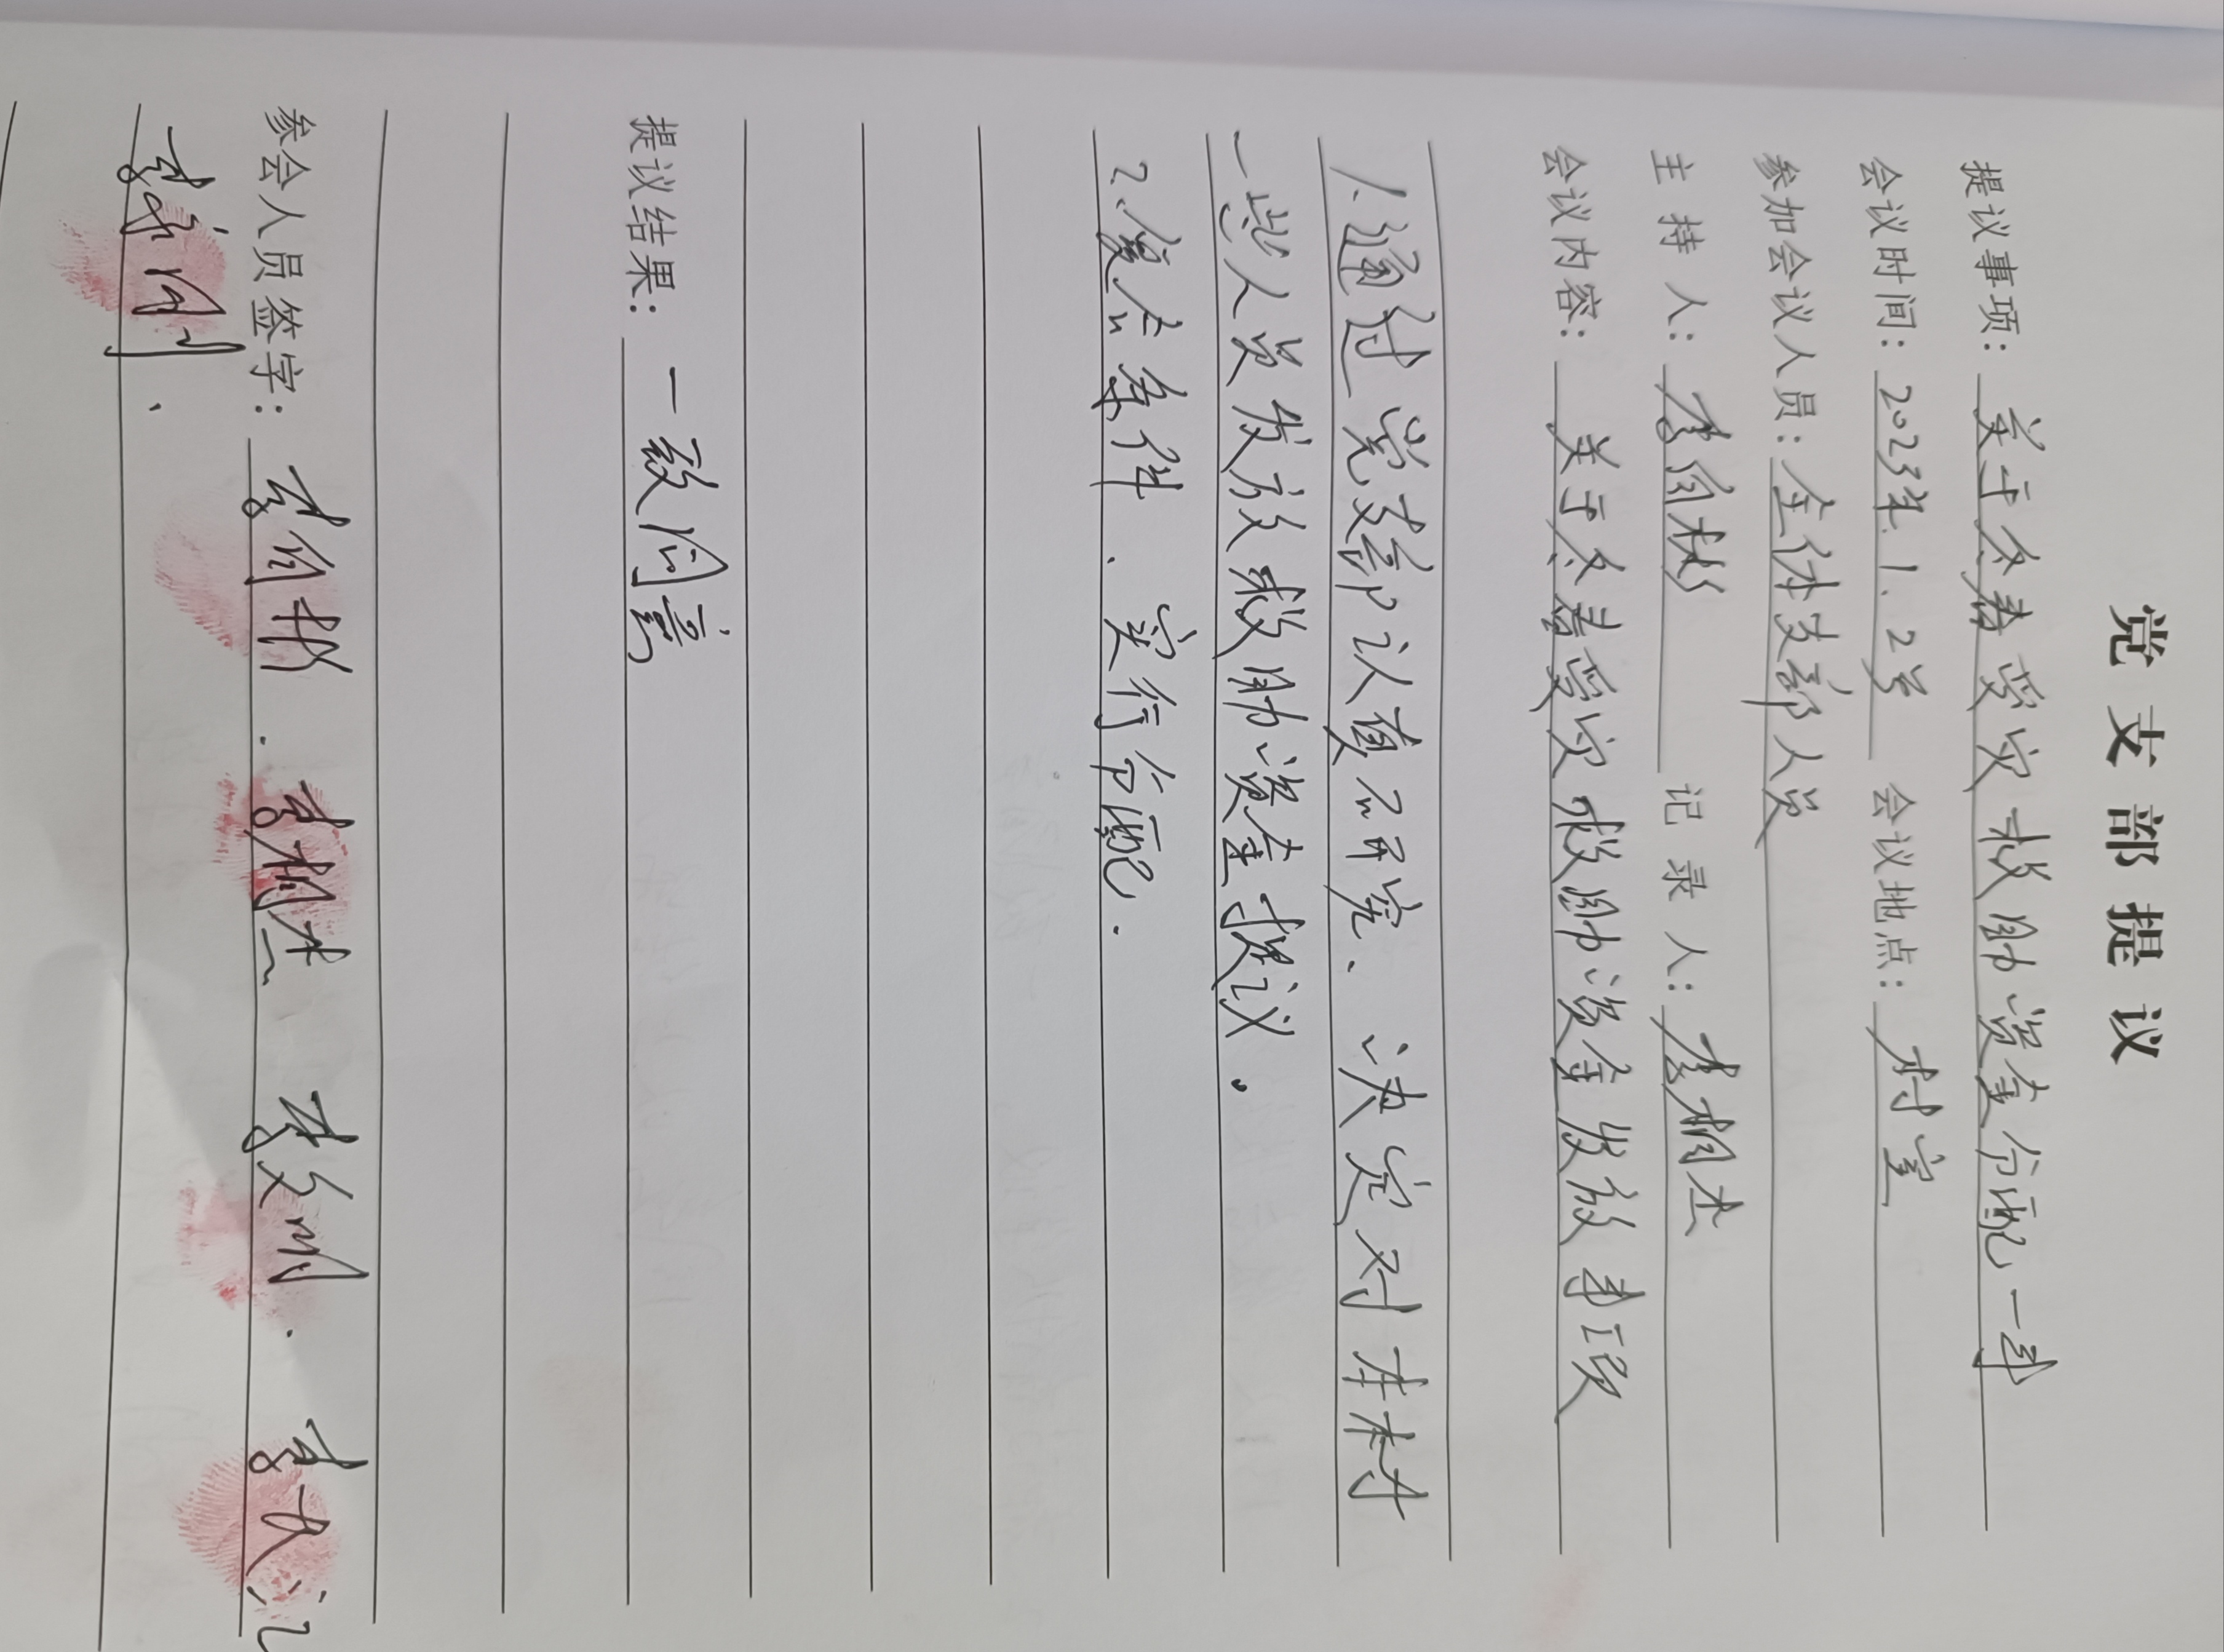 党支部提议
提议事项：关于冬春受灾救助资金分配一事
会议时间：2023年.1.2号 会议地点：村室
参加会议人员：全体支部人员
主持人：李自彬 记录人：李相杰
会议内容：关于冬春受灾救助资金发放事项
1.通过党支部认真研究.决定对本村
一些人员发放救助资金提议.
2.复合条件.实行分配.
提议结果：一致同意
参会人员签字：李自彬.李相杰 李